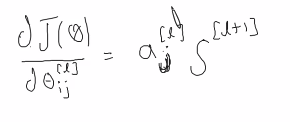 dJ(θ)/dθ_{ij}^{[l]} = a_j^{[l]} δ^{[l+1]}